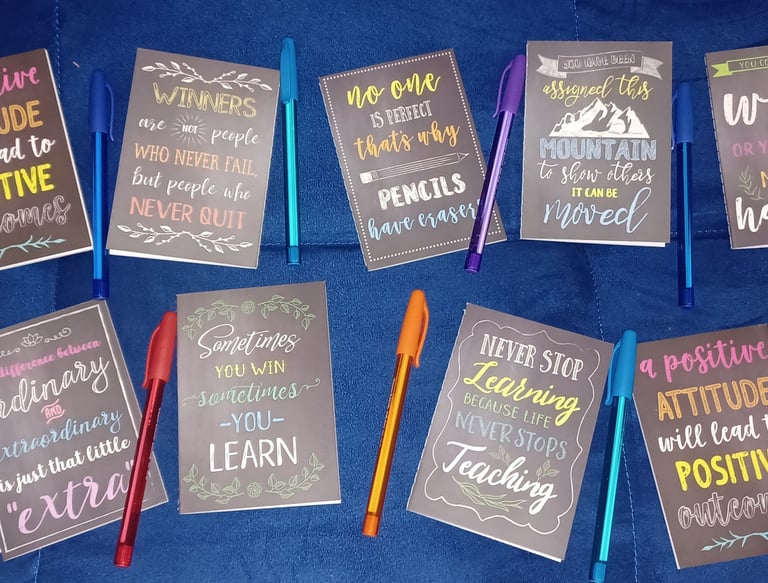 ive
UDE
ad to
TIVE
omes
WINNERS
are NOT people
WHO NEVER FAIL,
but people who
NEVER QUIT
no one
IS PERFECT
that's why
PENCILS
have eraser
YOU HAVE BEEN
assigned this
MOUNTAIN
to show others
IT CAN BE
moved
YOU CO
OR Y
N
he
difference between
rdinary
AND
extraordinary
is just that little
"extra"
Sometimes
YOU WIN
sometimes
-YOU-
LEARN
NEVER STOP
Learning
BECAUSE LIFE
NEVER STOPS
Teaching
a positive
ATTITUDE
will lead t
POSITIV
outcom